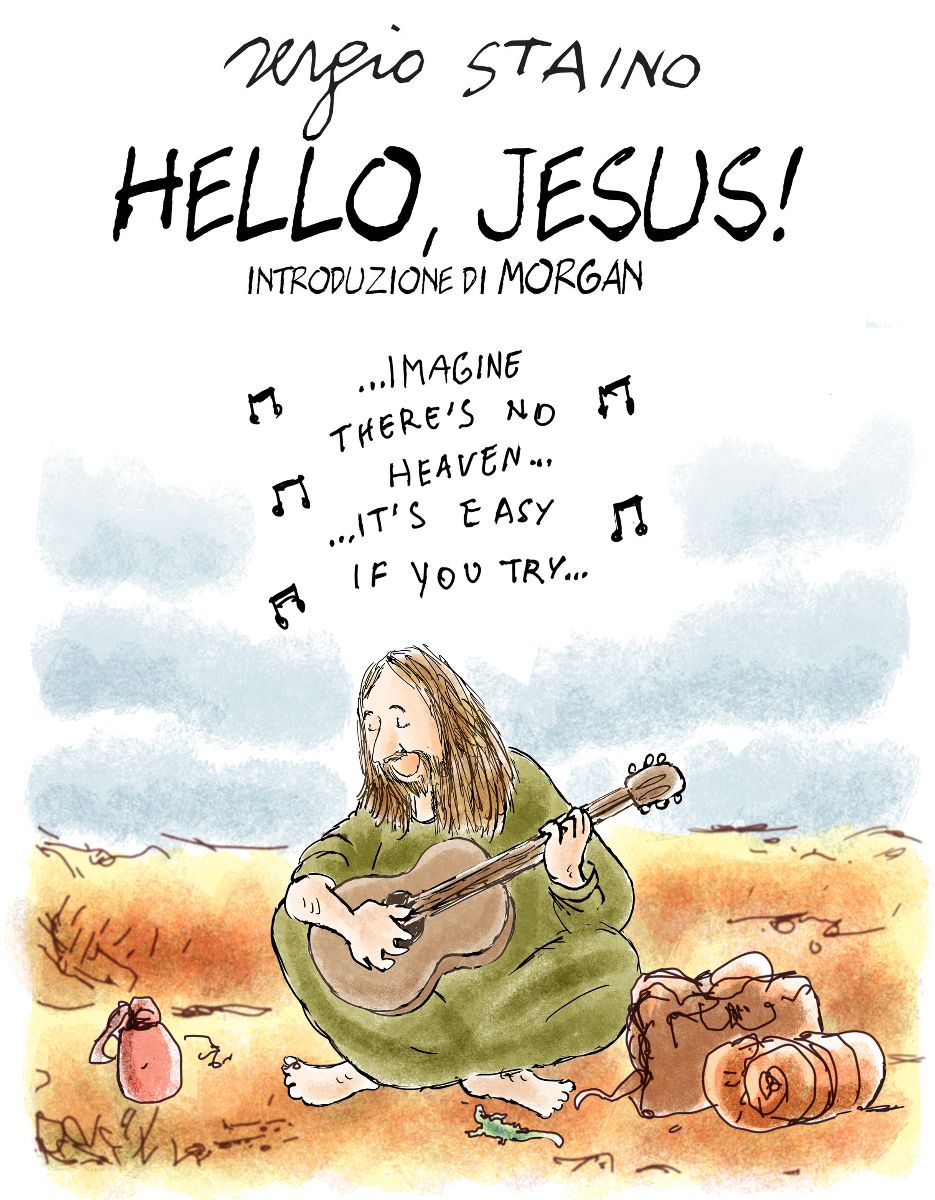 sergio STAINO
HELLO, JESUS!
INTRODUZIONE DI MORGAN
...IMAGINE
THERE'S NO
HEAVEN...
...IT'S EASY
IF YOU TRY...